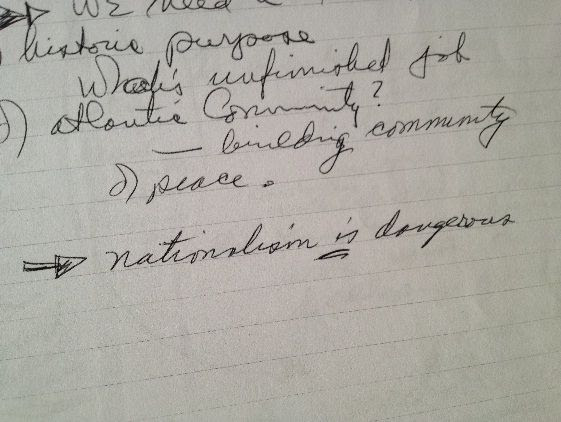 → WE need a
historic purpose
What's unfinished job
2) atlantic Community?
— building community
2) peace.
⇒ nationalism is dangerous